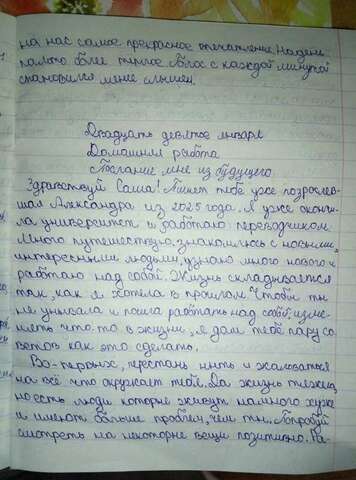 на нас самое прекрасное впечатление. Надень
пальто более тёплое
голос с каждой минутой
становился менее слышен.
Двадцать девятое января
Домашняя работа
Послание мне из будущего.
Здравствуй Саша! Пишет тебе уже повзрослев-
шая Александра из 2025 года. Я уже окончи-
ла университет и работаю переводчиком.
Много путешествую, знакомлюсь с новыми,
интересными людьми, узнаю много нового и
работаю над собой. Жизнь складывается
так, как я хотела в прошлом. Чтобы ты
не унывала и пошла работать над собой, изме-
нять что-то в жизни, я дам тебе пару со-
ветов как это сделать.
Во-первых, перестань ныть и жаловаться
на всё что окружает тебя. Да жизнь тяжела,
но есть люди которые живут намного хуже
и имеют больше проблем, чем ты. Попробуй
смотреть на некоторые вещи позитивно. Ра-